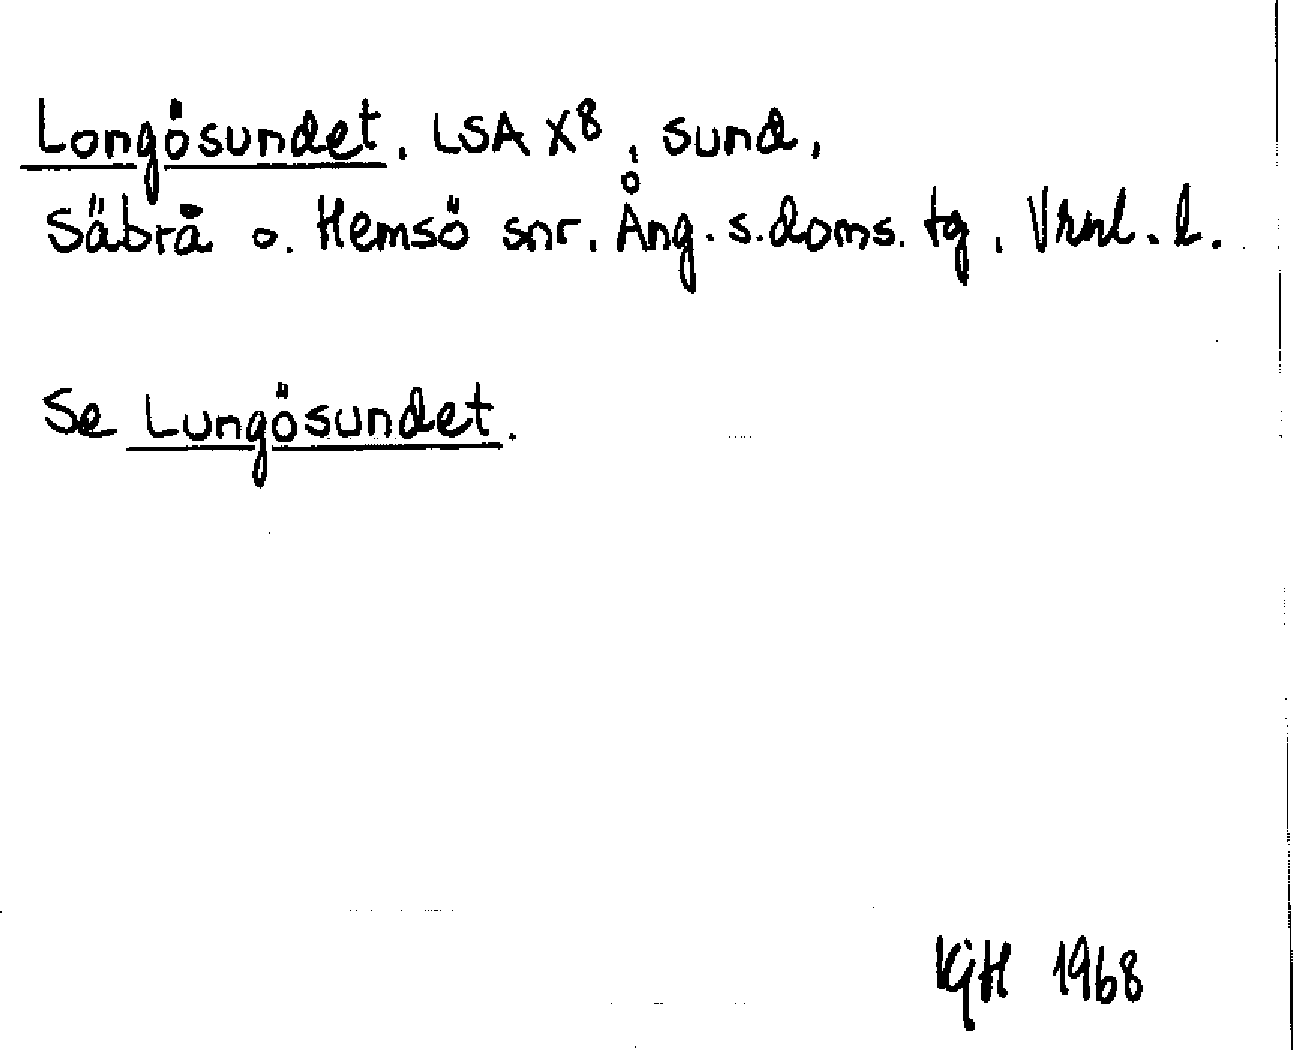 Longösundet, LSA X8, sund,
Säbrå o. Hemsö snr. Ång. s. doms. tg, Vrnl. l.
Se Lungösundet.
KGH 1968